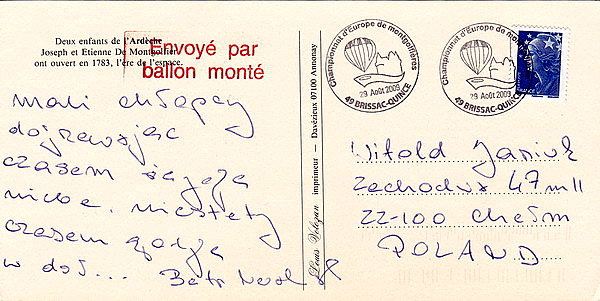 Deux enfants de l'Ardèche
Joseph et Etienne De Montgolfier
ont ouvert en 1783, l'ère de l'espace.
Envoyé par
ballon monté
mali chłopcy
dojrzewając
czasem sięgają
nieba. niestety
czasem
w dół...
imprimeur — Davézieux 07100 Annonay
Championnat d'Europe de montgolfières
29 Août 2009
49 BRISSAC-QUINCE
Championnat d'Europe de montgolfières
29 Août 2009
49 BRISSAC-QUINCE
FRANCE
Witold
47 m 11
22-100 Chełm
POLAND